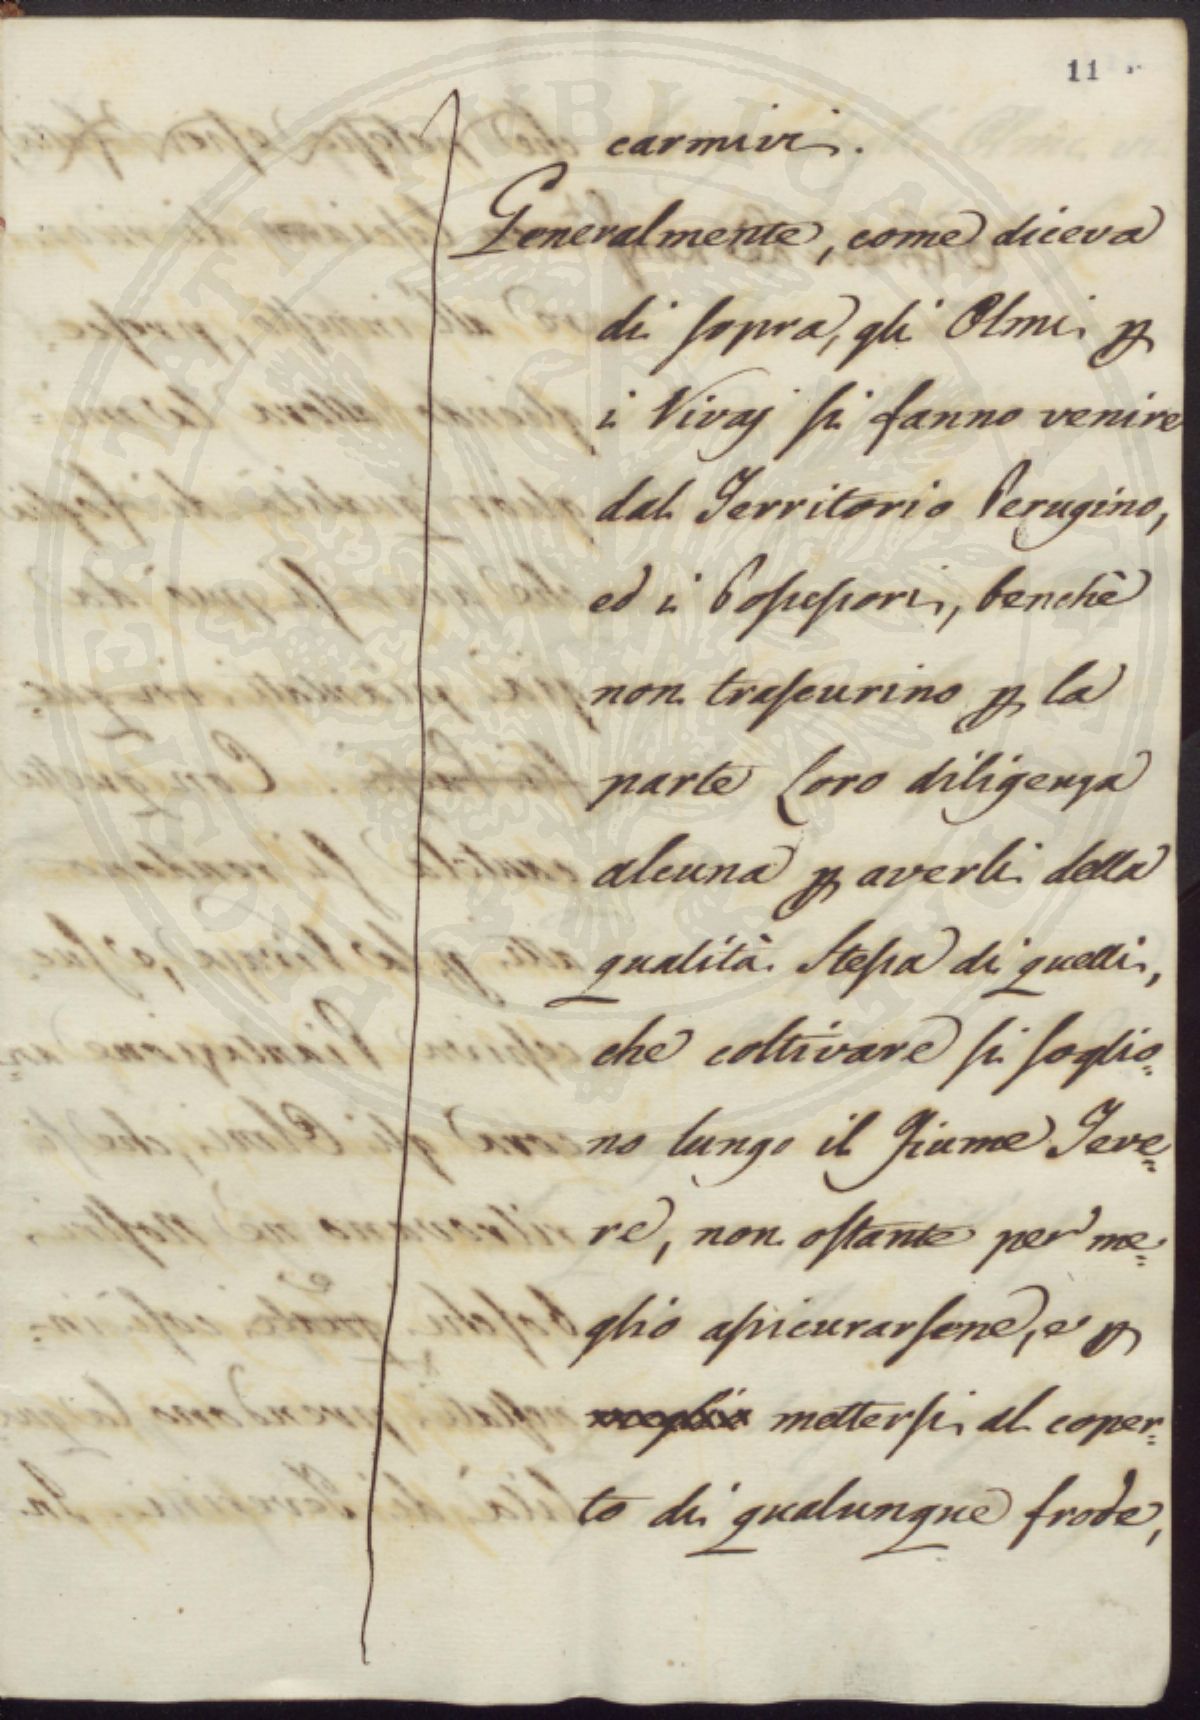 11
carmivi.
Generalmente, come diceva
di sopra, gli Olmi p
i Vivaj si fanno venire
dal Territorio Perugino,
ed i Possessori, benchè
non trascurino p la
parte Loro diligenza
alcuna p averli della
qualità Stessa di quelli,
che coltivare si soglio=
no lungo il Fiume Teve=
re, non ostante per me=
glio assicurarsene, e p
mettersi al coper=
to di qualunque frode,